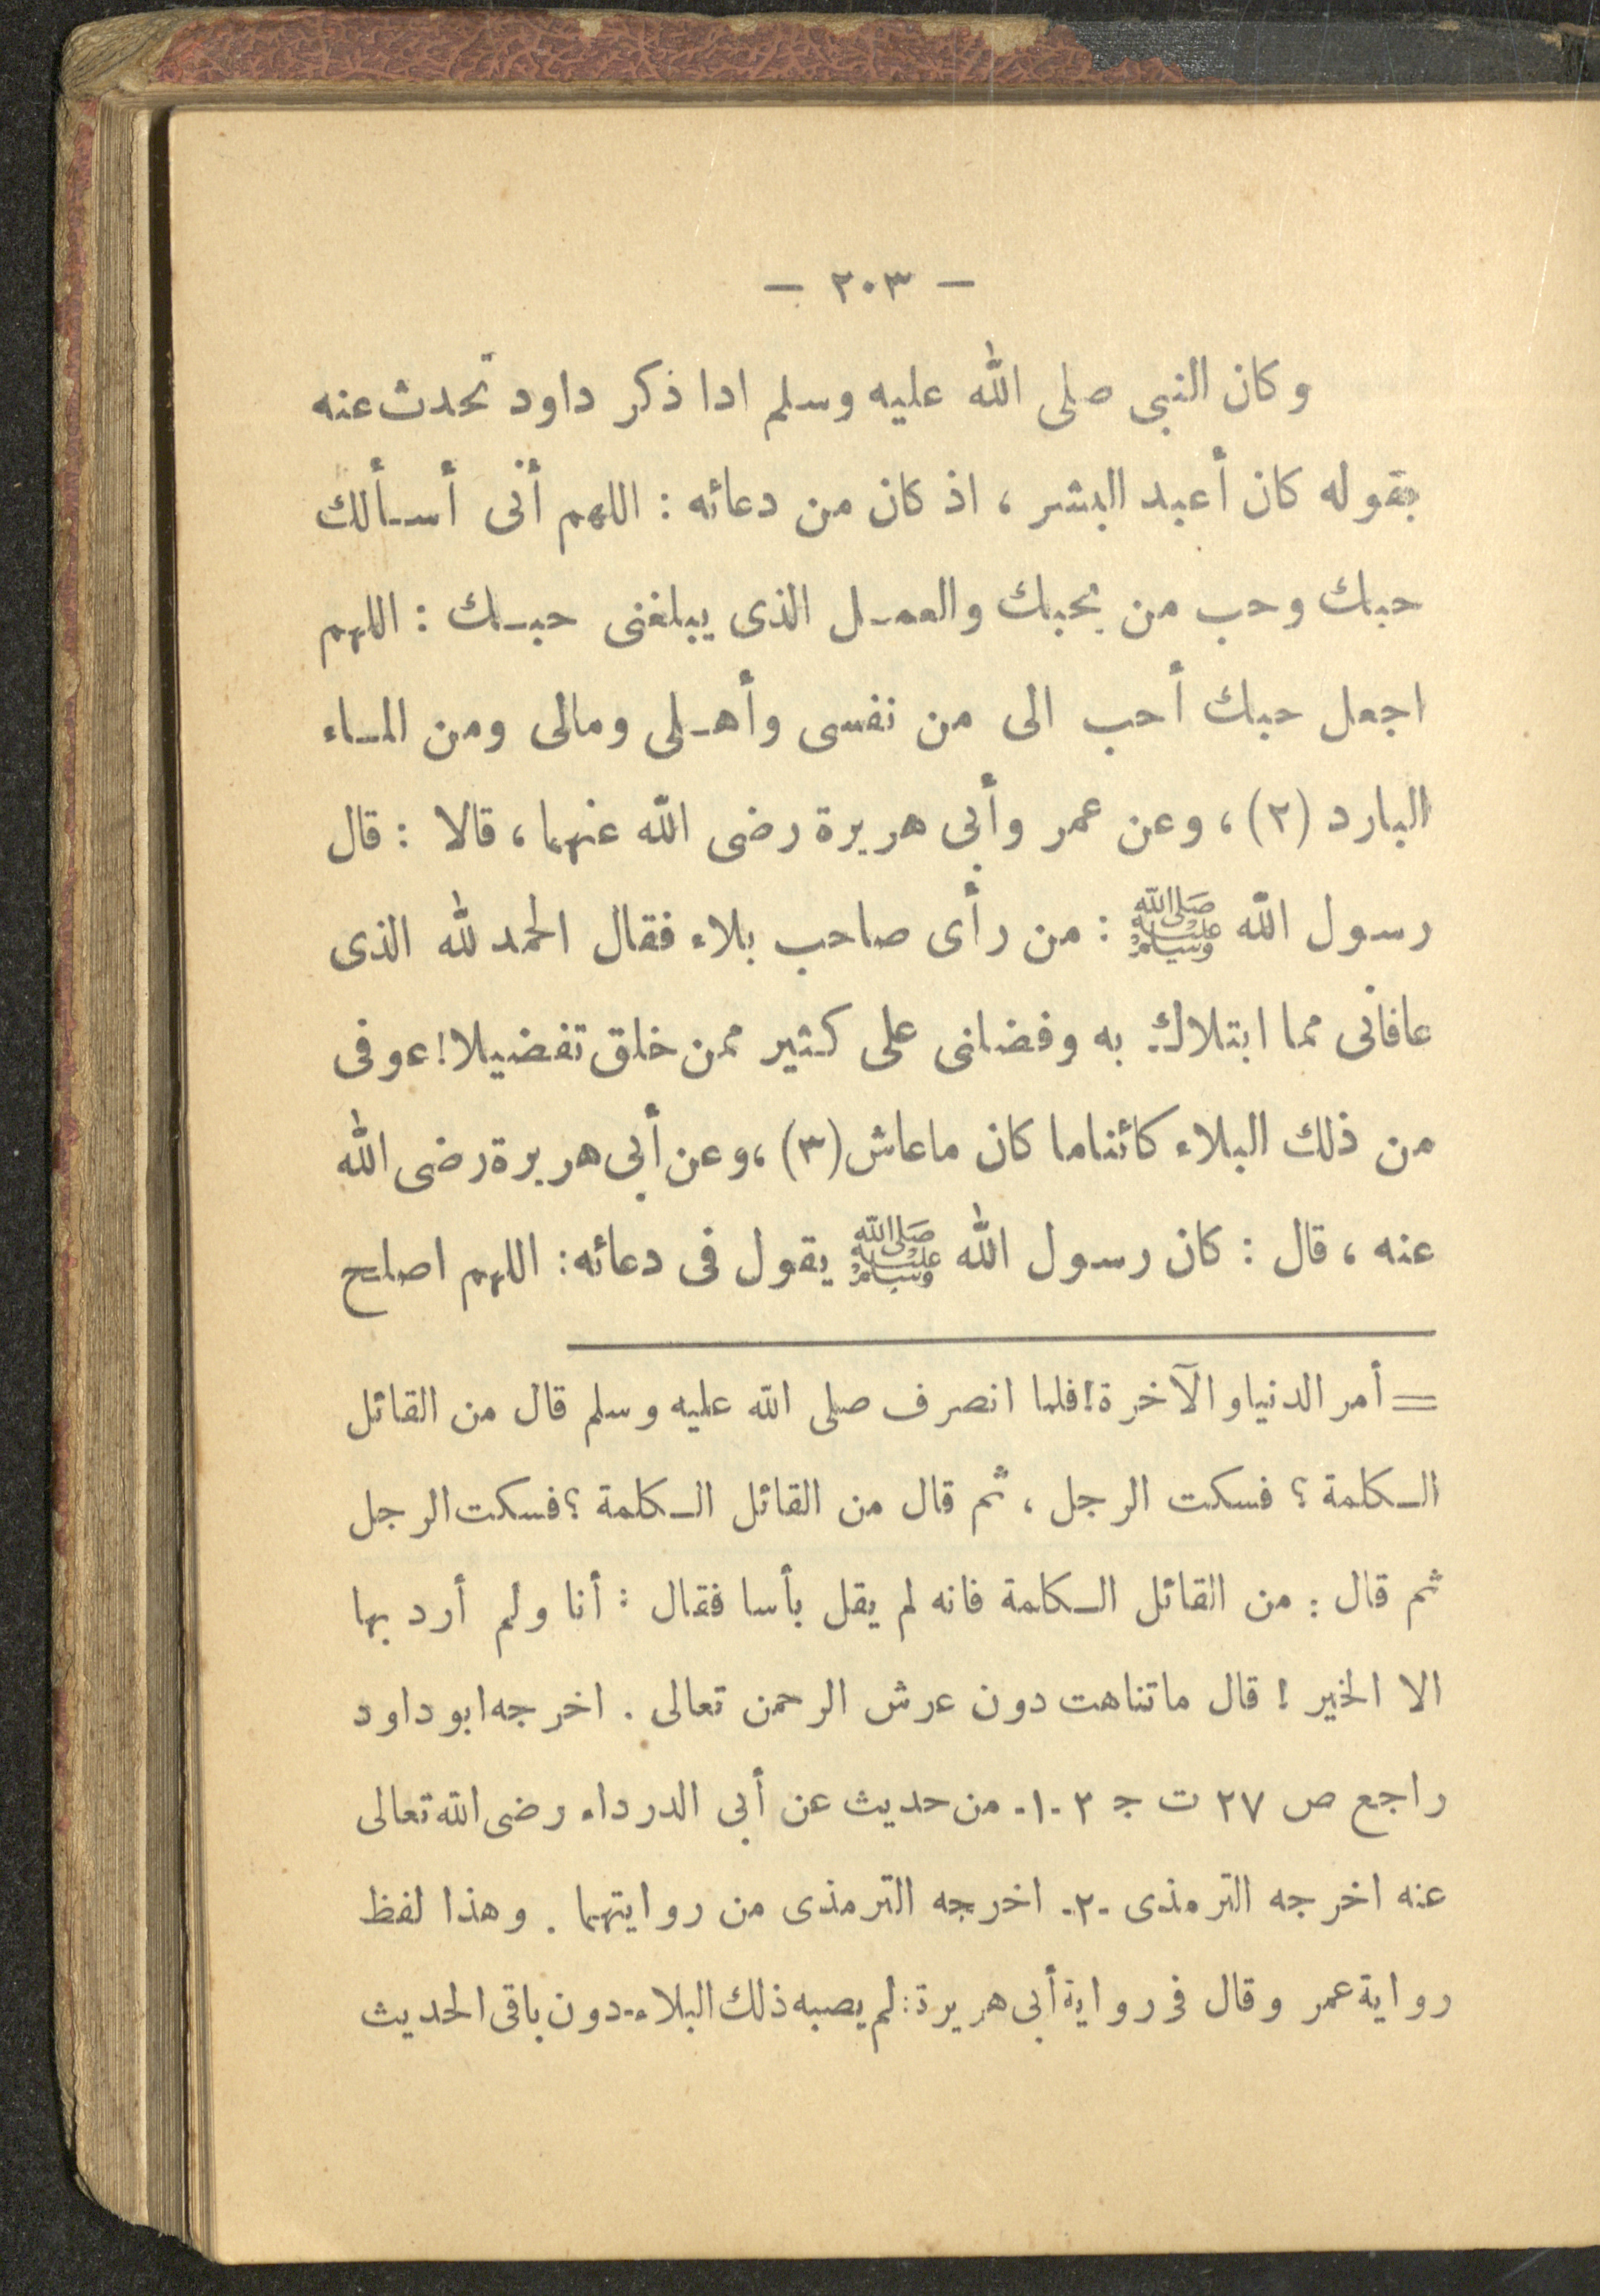 — ٢٠٣ —
وكان النبى صلى الله عليه وسلم ادا ذكر داود تحدث عنه
بقوله كان أعبد البشر ، اذ كان من دعائه : اللهم أنى أسألك
حبك وحب من يحبك والعمل الذى يبلغنى حبك : اللهم
اجعل حبك أحب الى من نفسى وأهلى ومالى ومن الماء
البارد (٢) ، وعن عمر وأبى هريرة رضى الله عنهما ، قالا : قال
رسول الله ﷺ : من رأى صاحب بلاء فقال الحمد لله الذى
عافانى مما ابتلاك به وفضلنى على كثير ممن خلق تفضيلا! عوفى
من ذلك البلاء كائناما كان ماعاش (٣) ، وعن أبى هريرة رضى الله
عنه ، قال : كان رسول الله ﷺ يقول فى دعائه : اللهم اصلح
= أمر الدنيا والآخرة! فلما انصرف صلى الله عليه وسلم قال من القائل
الكلمة ؟ فسكت الرجل ، ثم قال من القائل الكلمة ؟ فسكت الرجل
ثم قال : من القائل الكلمة فانه لم يقل بأسا فقال : أنا ولم أرد بها
الا الخير ! قال ماتناهت دون عرش الرحمن تعالى . اخرجه ابو داود
راجع ص ٢٧ ت ج ٢ -١- من حديث عن أبى الدرداء رضى الله تعالى
عنه اخرجه الترمذى -٢- اخرجه الترمذى من روايتهما . وهذا لفظ
رواية عمر وقال فى رواية أبى هريرة : لم يصبه ذلك البلاء- دون باقى الحديث